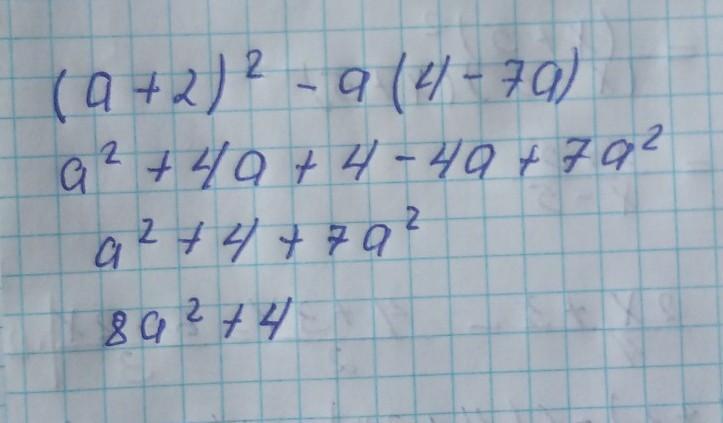 (a + 2)² - a (4 - 7a)
a² + 4a + 4 - 4a + 7a²
a² + 4 + 7a²
8a² + 4